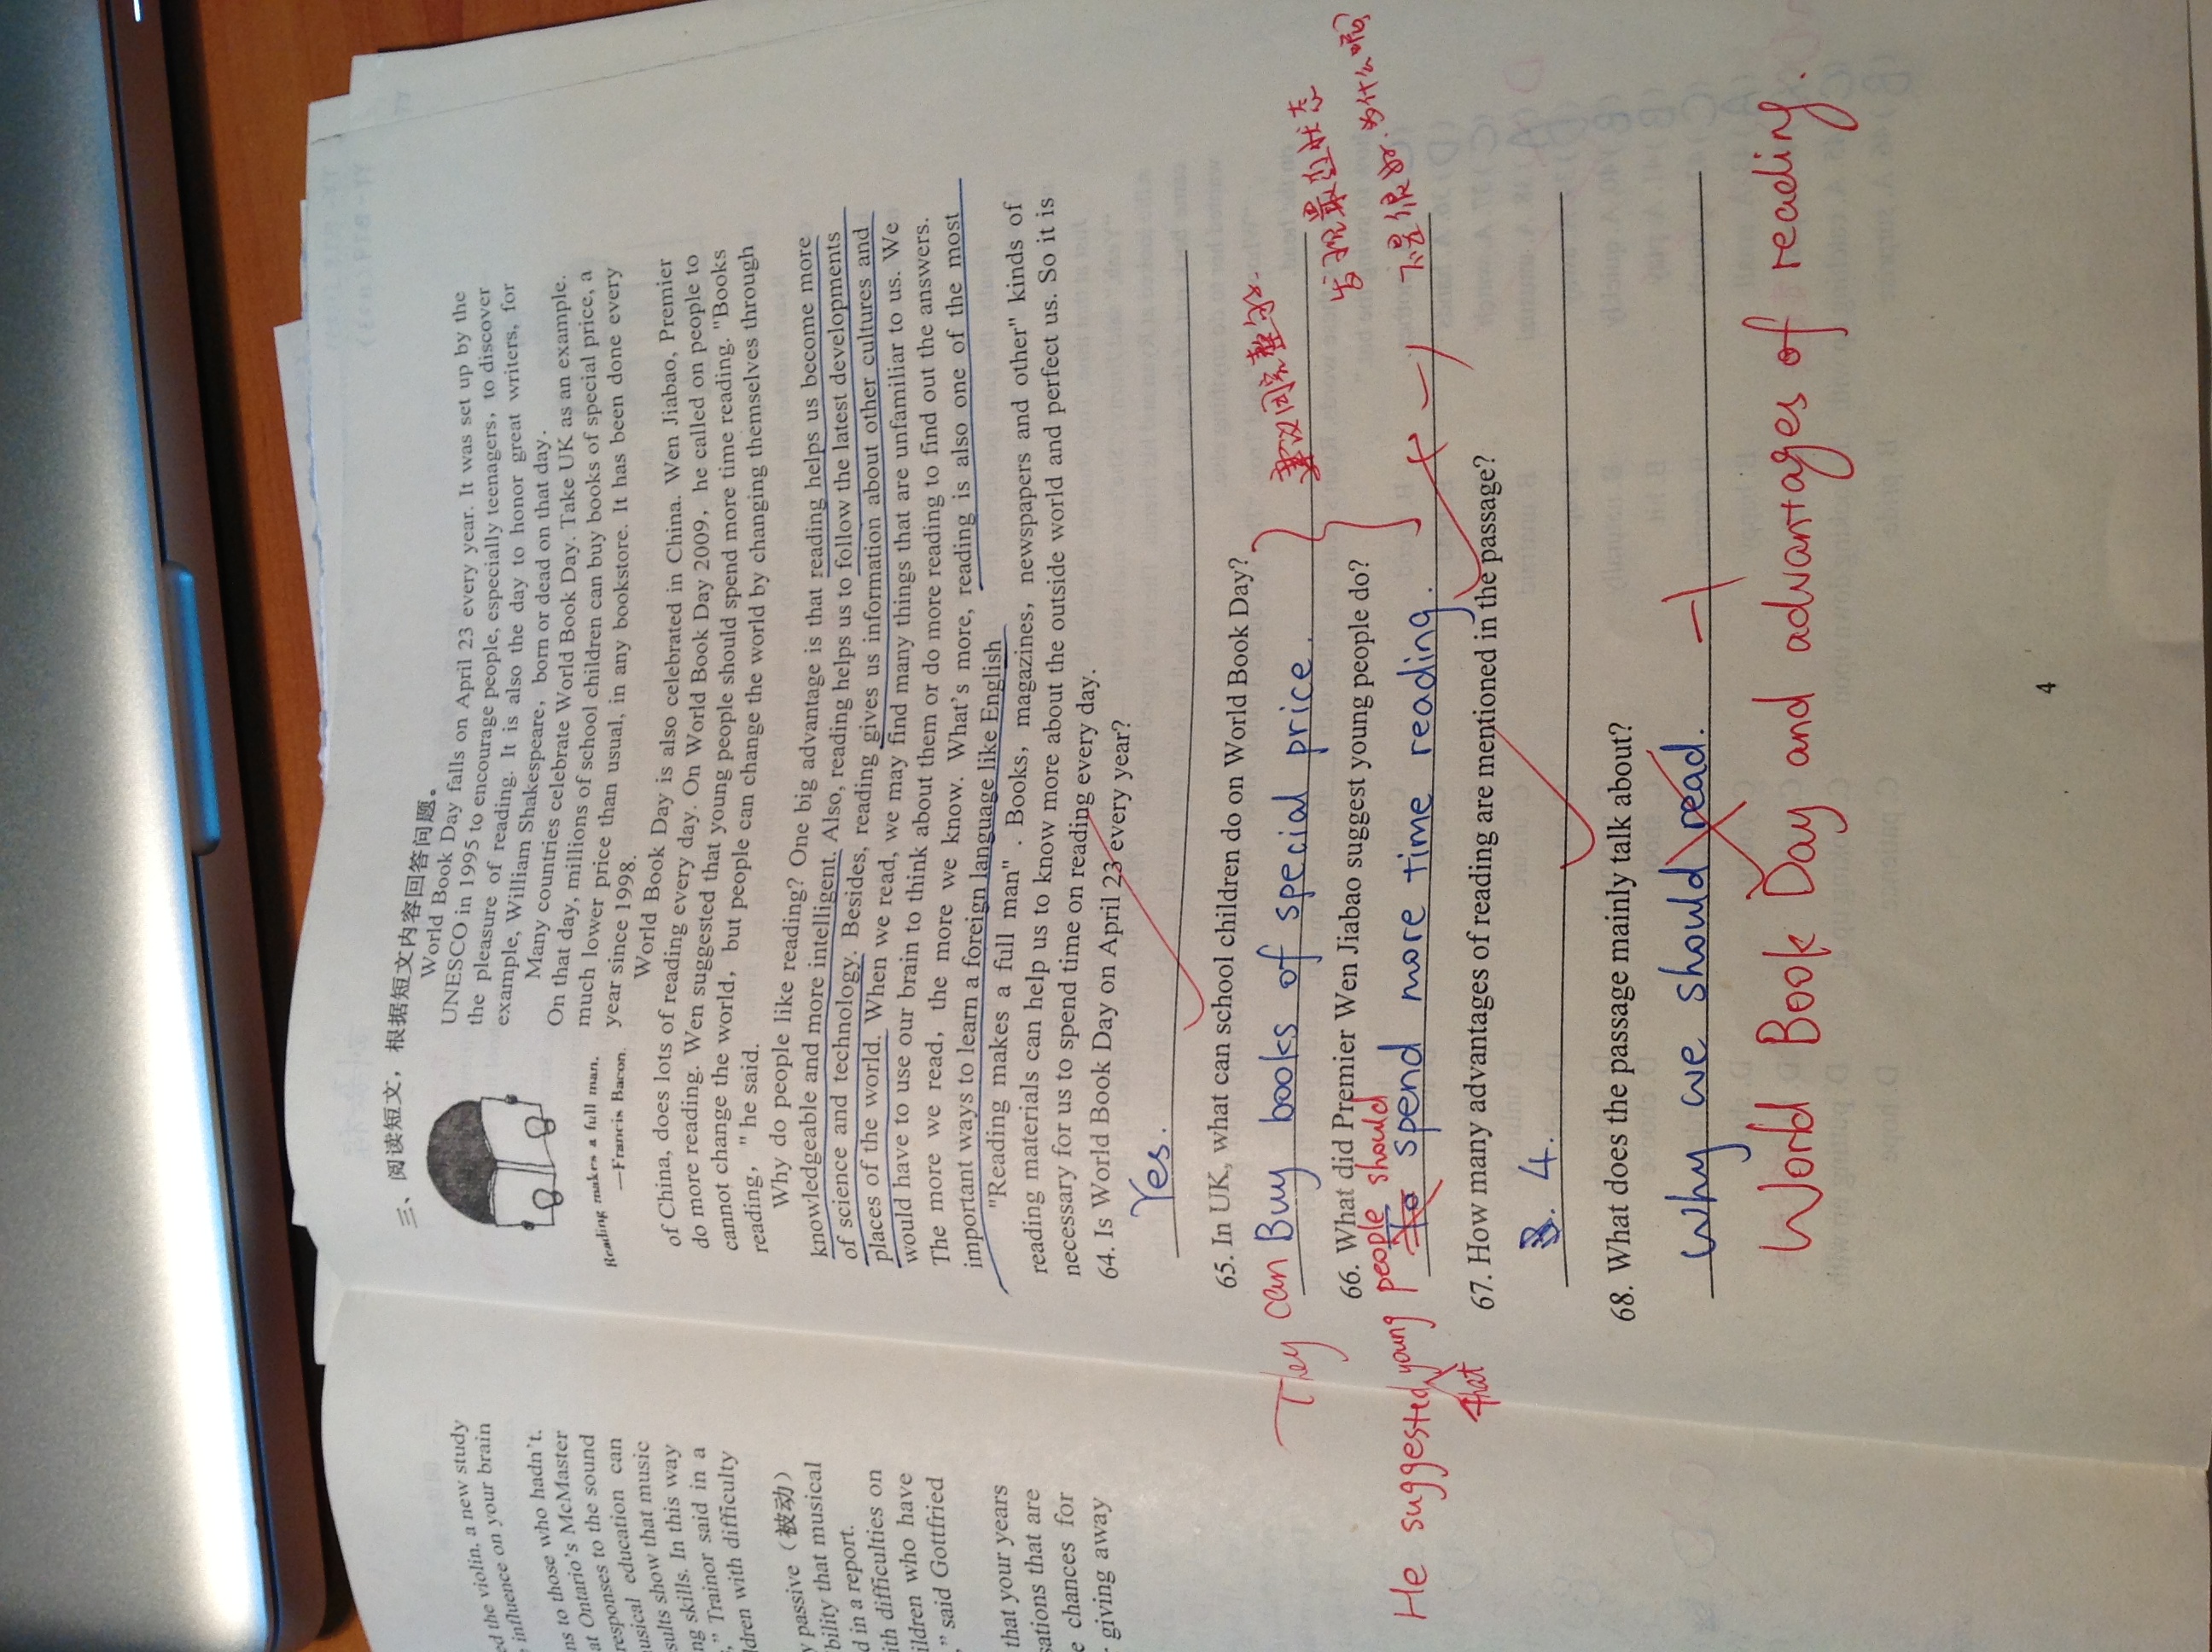 ed the violin, a new study
influence on your brain
ns to those who hadn't.
at Ontario's McMaster
responses to the sound
usical education can
sults show that music
ng skills. In this way
," Trainor said in a
ldren with difficulty
y passive (被动)
bility that musical
d in a report.
ith difficulties on
ildren who have
," said Gottfried
that your years
sations that are
e chances for
giving away
三、阅读短文，根据短文内容回答问题。
World Book Day falls on April 23 every year. It was set up by the
UNESCO in 1995 to encourage people, especially teenagers, to discover
the pleasure of reading. It is also the day to honor great writers, for
example, William Shakespeare, born or dead on that day.
Many countries celebrate World Book Day. Take UK as an example.
On that day, millions of school children can buy books of special price, a
much lower price than usual, in any bookstore. It has been done every
year since 1998.
Reading makes a full man.
—Francis Bacon.
World Book Day is also celebrated in China. Wen Jiabao, Premier
of China, does lots of reading every day. On World Book Day 2009, he called on people to
do more reading. Wen suggested that young people should spend more time reading. "Books
cannot change the world, but people can change the world by changing themselves through
reading, " he said.
Why do people like reading? One big advantage is that reading helps us become more
knowledgeable and more intelligent. Also, reading helps us to follow the latest developments
of science and technology. Besides, reading gives us information about other cultures and
places of the world. When we read, we may find many things that are unfamiliar to us. We
would have to use our brain to think about them or do more reading to find out the answers.
The more we read, the more we know. What's more, reading is also one of the most
important ways to learn a foreign language like English
"Reading makes a full man" . Books, magazines, newspapers and other" kinds of
reading materials can help us to know more about the outside world and perfect us. So it is
necessary for us to spend time on reading every day.
64. Is World Book Day on April 23 every year?
Yes.
65. In UK, what can school children do on World Book Day?
They can Buy books of special price.
建议回完整句子.
66. What did Premier Wen Jiabao suggest young people do?
发现最近状态
不是很好.为什么呢?
He suggested young people should
that
To spend more time reading.
-1
67. How many advantages of reading are mentioned in the passage?
3. 4.
68. What does the passage mainly talk about?
Why we should read. -1
World Book Day and advantages of reading.
4